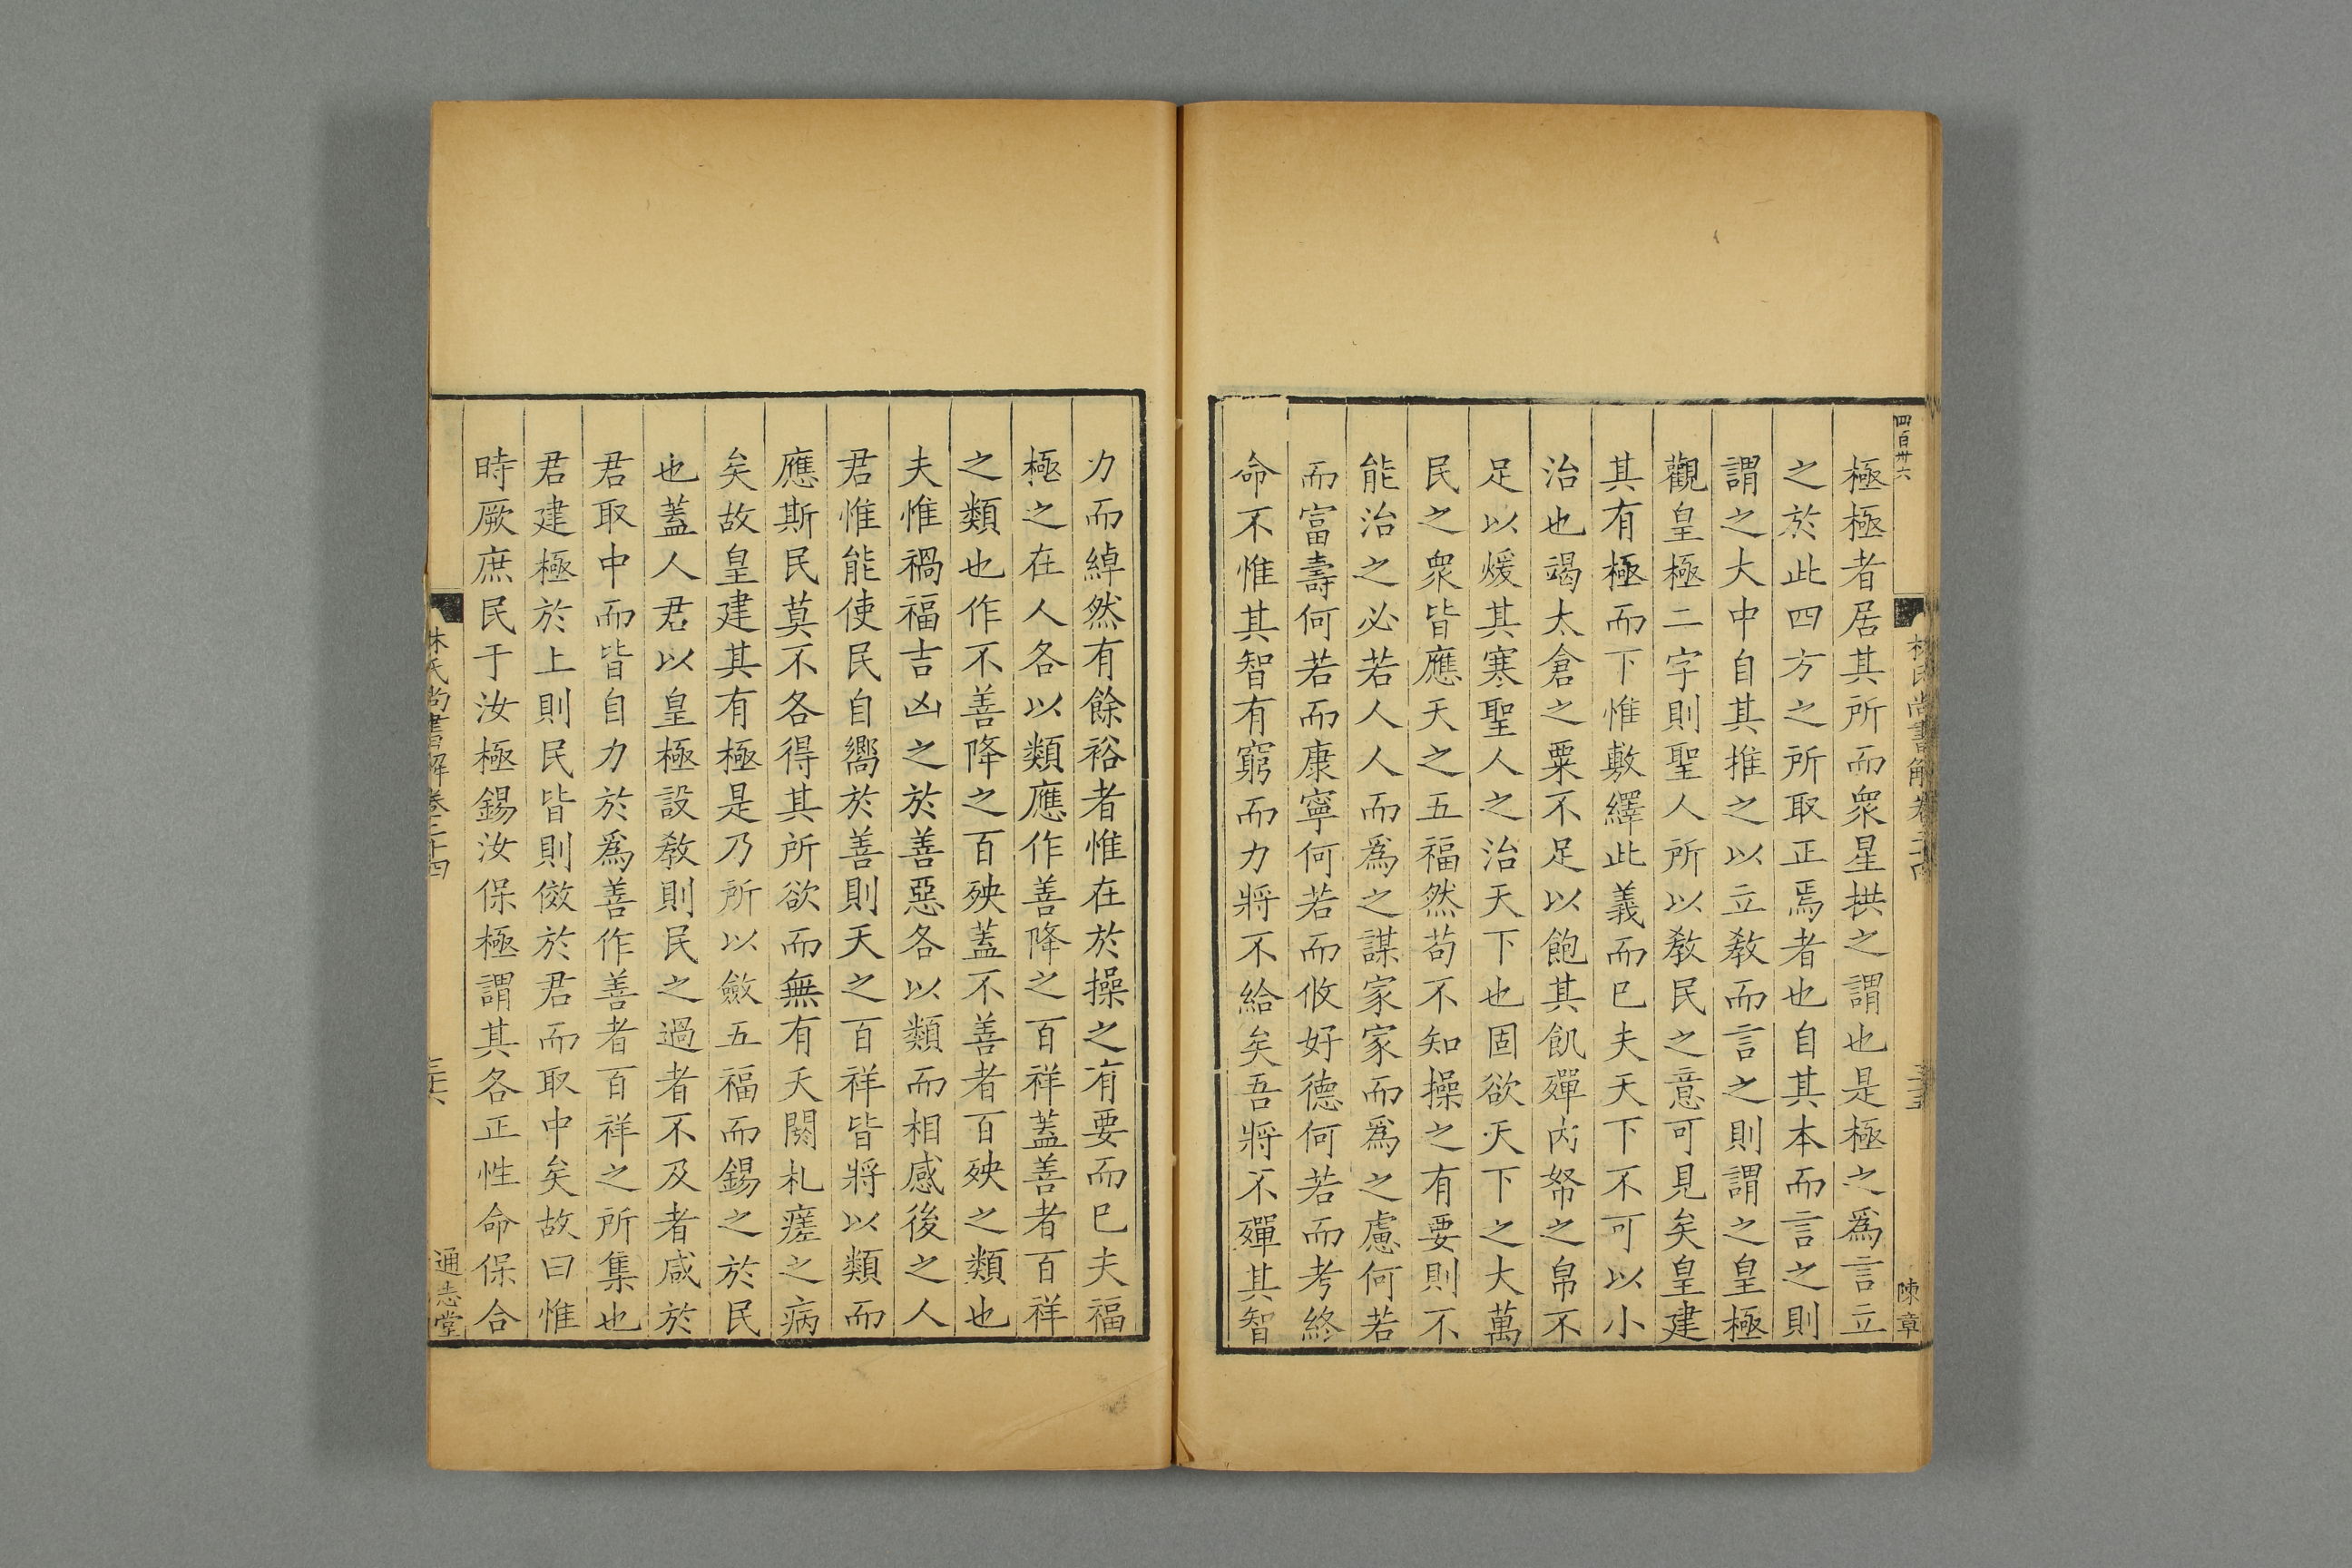 四百卅六
林氏尚書解卷二十四
陳章
極極者居其所而衆星拱之謂也是極之爲言立
之於此四方之所取正焉者也自其本而言之則
謂之大中自其推之以立敎而言之則謂之皇極
觀皇極二字則聖人所以敎民之意可見矣皇建
其有極而下惟敷繹此義而已夫天下不可以小
治也竭太倉之粟不足以飽其飢殫內帑之帛不
足以煖其寒聖人之治天下也固欲天下之大萬
民之衆皆應天之五福然苟不知操之有要則不
能治之必若人人而爲之謀家家而爲之慮何若
而富壽何若而康寧何若而攸好德何若而考終
命不惟其智有窮而力將不給矣吾將不殫其智
力而綽然有餘裕者惟在於操之有要而已夫福
極之在人各以類應作善降之百祥蓋善者百祥
之類也作不善降之百殃蓋不善者百殃之類也
夫惟禍福吉凶之於善惡各以類而相感後之人
君惟能使民自嚮於善則天之百祥皆將以類而
應斯民莫不各得其所欲而無有夭閼札瘥之病
矣故皇建其有極是乃所以斂五福而錫之於民
也蓋人君以皇極設敎則民之過者不及者咸於
君取中而皆自力於爲善作善者百祥之所集也
君建極於上則民皆則傚於君而取中矣故曰惟
時厥庶民于汝極錫汝保極謂其各正性命保合
林氏尚書解卷二十四
通志堂